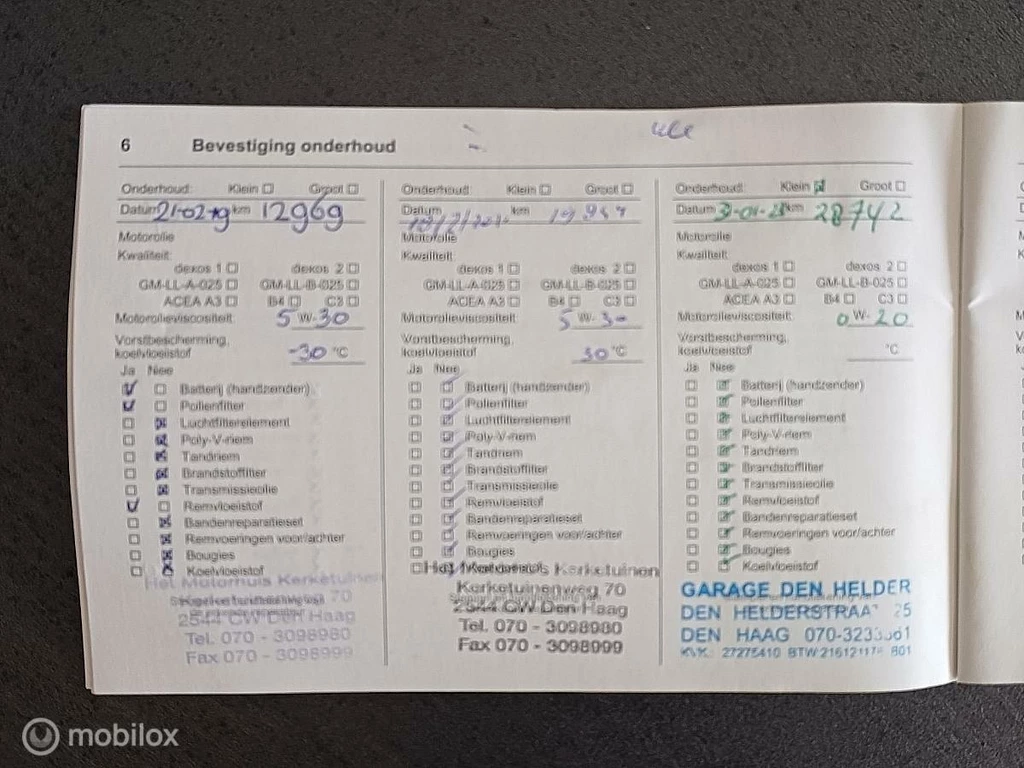 6 Bevestiging onderhoud
Onderhoud: Klein Groot
Datum 21-02-19 km 12969
Motorolie
Kwaliteit:
dexos 1 dexos 2
GM-LL-A-025 GM-LL-B-025
ACEA A3 B4 C3
Motorolieviscositeit: 5 W-30
Vorstbescherming,
koelvloeistof -30 °C
Ja Nee
Batterij (handzender)
Pollenfilter
Luchtfilterelement
Poly-V-riem
Tandriem
Brandstoffilter
Transmissieolie
Remvloeistof
Bandenreparatieset
Remvoeringen voor/achter
Bougies
Koelvloeistof
Het Motorhuis Kerketuinen
Kerketuinenweg 70
2544 CW Den Haag
Tel. 070 - 3098980
Fax 070 - 3098999
Onderhoud: Klein Groot
Datum km
Motorolie
Kwaliteit:
dexos 1 dexos 2
GM-LL-A-025 GM-LL-B-025
ACEA A3 B4 C3
Motorolieviscositeit: 5 W-30
Vorstbescherming,
koelvloeistof 30 °C
Ja Nee
Batterij (handzender)
Pollenfilter
Luchtfilterelement
Poly-V-riem
Tandriem
Brandstoffilter
Transmissieolie
Remvloeistof
Bandenreparatieset
Remvoeringen voor/achter
Bougies
Koelvloeistof
Het Motorhuis Kerketuinen
Kerketuinenweg 70
2544 CW Den Haag
Tel. 070 - 3098980
Fax 070 - 3098999
Onderhoud: Klein Groot
Datum km 28742
Motorolie
Kwaliteit:
dexos 1 dexos 2
GM-LL-A-025 GM-LL-B-025
ACEA A3 B4 C3
Motorolieviscositeit: 0 W-20
Vorstbescherming,
koelvloeistof °C
Ja Nee
Batterij (handzender)
Pollenfilter
Luchtfilterelement
Poly-V-riem
Tandriem
Brandstoffilter
Transmissieolie
Remvloeistof
Bandenreparatieset
Remvoeringen voor/achter
Bougies
Koelvloeistof
GARAGE DEN HELDER
DEN HELDERSTRAAT 25
DEN HAAG
KVK. 27275410 BTW
mobilox